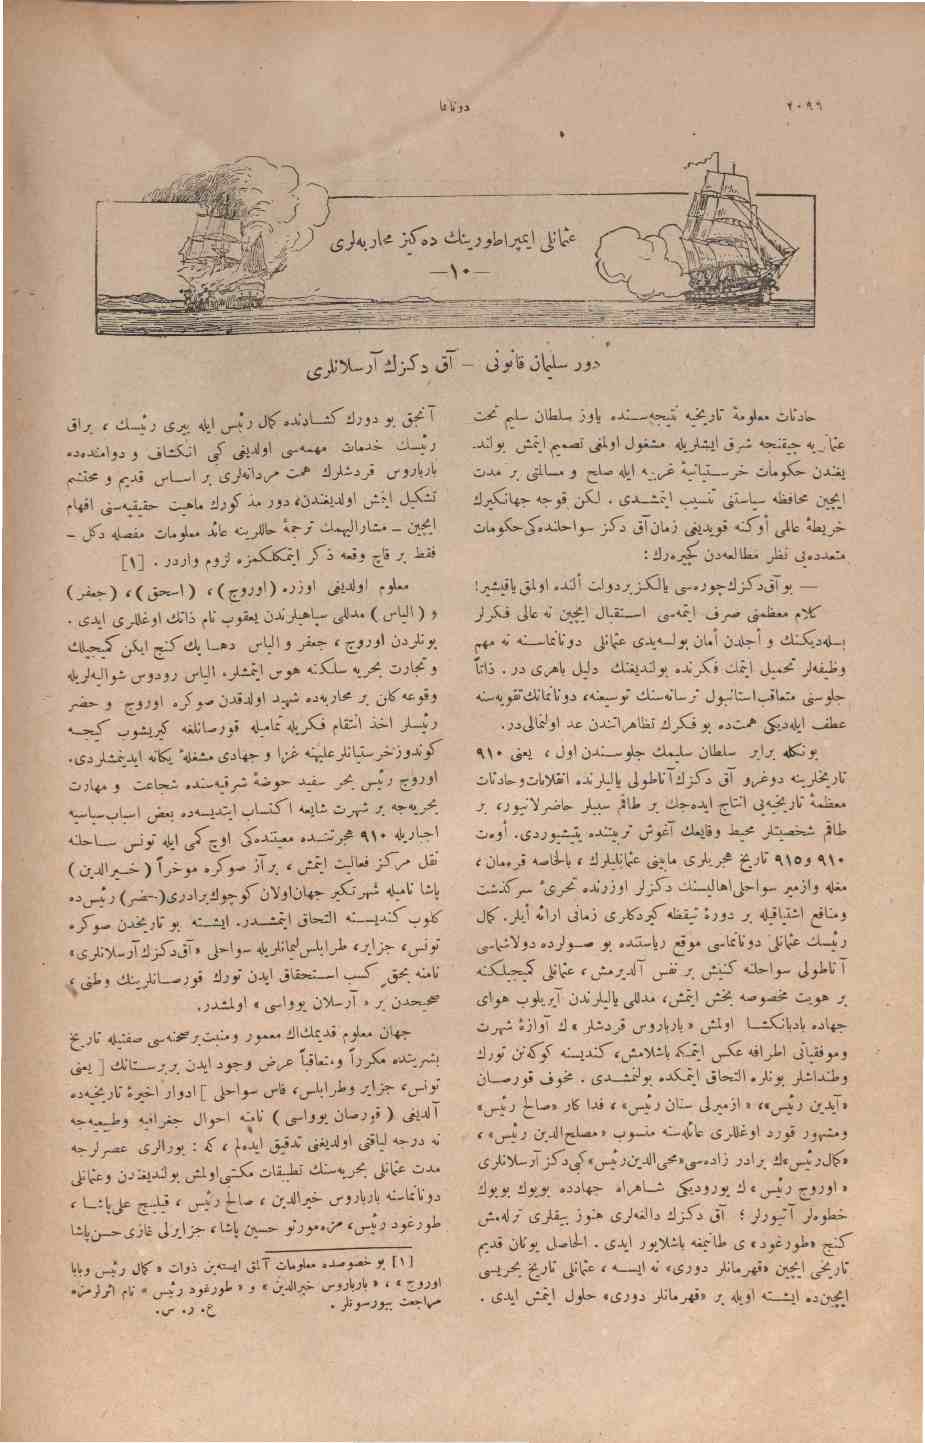 ٢٠٩٩
دونانما
عثمانلی ایمپراطورینك ده‌كیز محاربه‌لری
— ١٠ —
دور سلیمان قانونی — آق دكزك آرسلانلری
حادثات معلومهٔ تاریخیه نتیجه‌سنده یاوز سلطان سلیم تخت
عثمانی‌یه چیقنجه شرق ایشلریله مشغول اولمغی تصمیم ایتمش بولند.
یغندن حكومات خرستیانیهٔ غربیه ایله صلح و مسالمتی بر مدت
ایچین محافظه سیاستنی تنسیب ایتمشدی . لكن قوجه جهانكیرك
خریطهٔ عالمی أوكنه قویدیغی زمان آق دكز سواحلنده‌كی حكومات
متعدده‌یی نظر مطالعه‌دن كچیره‌رك :
— بو آق‌دكزك چوره‌سی یالكز بر دولت ألنده اولمق یاقیشیر!
كلام معظمنی صرف ایتمه‌سی استقبال ایچین نه عالی فكرلر
بسله‌دیكنك و أجلدن أمان بولسه‌یدی عثمانلی دونانماسنه نه مهم
وظیفه‌لر تحمیل ایتمك فكرنده بولندیغنك دلیل باهری در . ذاتاً
جلوسنی متعاقب استانبول ترسانه‌سنك توسیعنه، دونانمانك تقویه‌سنه
عطف ایله‌دیكی همت‌ده بو فكرك تظاهراتندن عد اولنمالی‌در.
بونكله برابر سلطان سلیمك جلوسندن اول ، یعنی ٩١٠
تاریخلرینه دوغرو آق دكزك آناطولی یالیلرنده انقلابات و حادثات
معظمهٔ تاریخیه‌یی انتاج ایده‌جك بر طاقم سببلر حاضرلانیور، بر
طاقم شخصیتلر محیط وقایعك آغوش تربیتنده یتیشیوردی. أوت
٩١٠ و ٩١٥ تاریخ هجریلری مابینی عثمانلیلرك ، بالخاصه قره‌مان ،
مغله و ازمیر سواحلی اهالیسنك دكزلر اوزرنده تحریٔ سركذشت
ومنافع اشتیاقیله بر دورهٔ تیقظه كیردكلری زمانی ارائه أیلر. كمال
رئیسك عثمانلی دونانماسی موقع ریاستنده بو صولرده دولاشماسی
آناطولی سواحلنه كنیش بر نفس آلدیرمش، عثمانلی كمیجیلكنه
بر هویت مخصوصه بخش ایتمش، مدللی یالیلرندن آیریلوب هوای
جهاده بادبانكشا اولمش «بارباروس قردشلر » ك آوازهٔ شهرت
وموفقیاتی اطرافه عكس ایتمكه باشلامش، كندیسنه كوكه‌نن تورك
وطنداشلر بونلره التحاق ایتمكده بولنمشدی . مخوف قورسان
«آیدین رئیس»، «ازمیرلی سنان رئیس» ، فداكار «صالح رئیس»
ومشهور قورد اوغللری عائله‌سنه منسوب «مصلح‌الدین رئیس» ،
«كمال رئیس»ك برادر زاده‌سی «محی‌الدین رئیس» كبی دكز آرسلانلری
« اوروج رئیس » ك یورودیكی شاهراه جهادده بویوك بویوك
خطوه‌لر آتیورلر ؛ آق دكزك دالغه‌لری هنوز بیقلری ترله‌مش
كنج «طورغود» ی طانیمغه باشلایور ایدی . الحاصل یونان قدیم
تاریخی ایچین «قهرمانلر دوری» نه ایسه ، عثمانلی تاریخ بحریسی
ایچین‌ده ایشته اویله بر «قهرمانلر دوری» حلول ایتمش ایدی .
آنجق بو دورك كشادنده كمال رئیس ایله پیری رئیسك ، براق
رئیسك خدمات مهمه‌سی اولدیغی كبی انكشاف و دوامنده‌ده
بارباروس قردشلرك همت مردانه‌لری بر اساس قدیم و محتشم
تشكیل ایتمش اولدیغندن، دور مذكورك ماهیت حقیقیه‌سنی افهام
ایچین — مشارالیهمك ترجمهٔ حاللرینه عائد معلومات مفصله دكل —
فقط بر قاچ وقعه ذكر ایتمكلكمزه لزوم واردر . [١]
معلوم اولدیغی اوزره (اوروج) ، (اسحق) ، (جعفر)
و (الیاس) مدللی سپاهیلرندن یعقوب نام ذاتك اوغللری ایدی .
بونلردن اوروج ، جعفر و الیاس دها پك كنج ایكن كمیجیلك
و تجارت بحریه سلكنه هوس ایتمشلر. الیاس رودوس شوالیه‌لریله
وقوعه كلن بر محاربه‌ده شهید اولدقدن صوكره اوروج و خضر
رئیسلر اخذ انتقام فكریله تمامیله قورصانلغه كیریشوب كیجه
كوندوز خرستیانلر علیهنه غزا و جهادی مشغلهٔ یكانه ایدینمشلردی.
اوروج رئیس بحر سفید حوضهٔ شرقیه‌سنده شجاعت و مهارت
بحریه‌جه بر شهرت شایعه اكتساب ایتدیسه‌ده بعض اسباب سیاسیه
اجباریله ٩١٠ هجرتنده معیتنده‌كی اوچ كمی ایله تونس ساحلنه
نقل مركز فعالیت ایتمش ، برآز صوكره موخراً (خیرالدین)
پاشا نامیله شهرتكیر جهان اولان كوچوك برادری (خضر) رئیس‌ده
كلوب كندیسنه التحاق ایتمشدر. ایشته بو تاریخدن صوكره
تونس، جزایر، طرابلس لیمانلریله سواحلی «آق‌دكزك آرسلانلری»
نامنه بحق كسب استحقاق ایدن تورك قورصانلرینك وطنی ،
صحیحدن بر « آرسلان یوواسی » اولمشدر.
جهان معلوم قدیمك اڭ معمور ومنبت بر صحنه‌سی صفتیله تاریخ
بشریتده مكرراً ومتعاقباً عرض وجود ایدن بربرستانك [ یعنی
تونس، جزایر وطرابلس، فاس سواحلی ] ادوار اخیرهٔ تاریخیه‌ده
آلدیغی (قورصان یوواسی) نامنه احوال جغرافیه وطبیعیه‌جه
نه درجه لیاقتی اولدیغنی تدقیق ایده‌لم ، كه : بورالری عصرلرجه
مدت عثمانلی بحریه‌سنك تطبیقات مكتبی اولمش بولندیغندن وعثمانلی
دونانماسنه بارباروس خیرالدین ، صالح رئیس ، قیلیچ علی پاشا ،
طورغود رئیس، مزه‌مورتو حسین پاشا، جزایرلی غازی حسن پاشا
[١] بو خصوصده معلومات آلمق ایسته‌ین ذوات « كمال رئیس و بابا
اوروج » ، « بارباروس خیرالدین » و « طورغود رئیس » نام اثرلرمزه
مراجعت بیورسونلر . ع. ر. س.